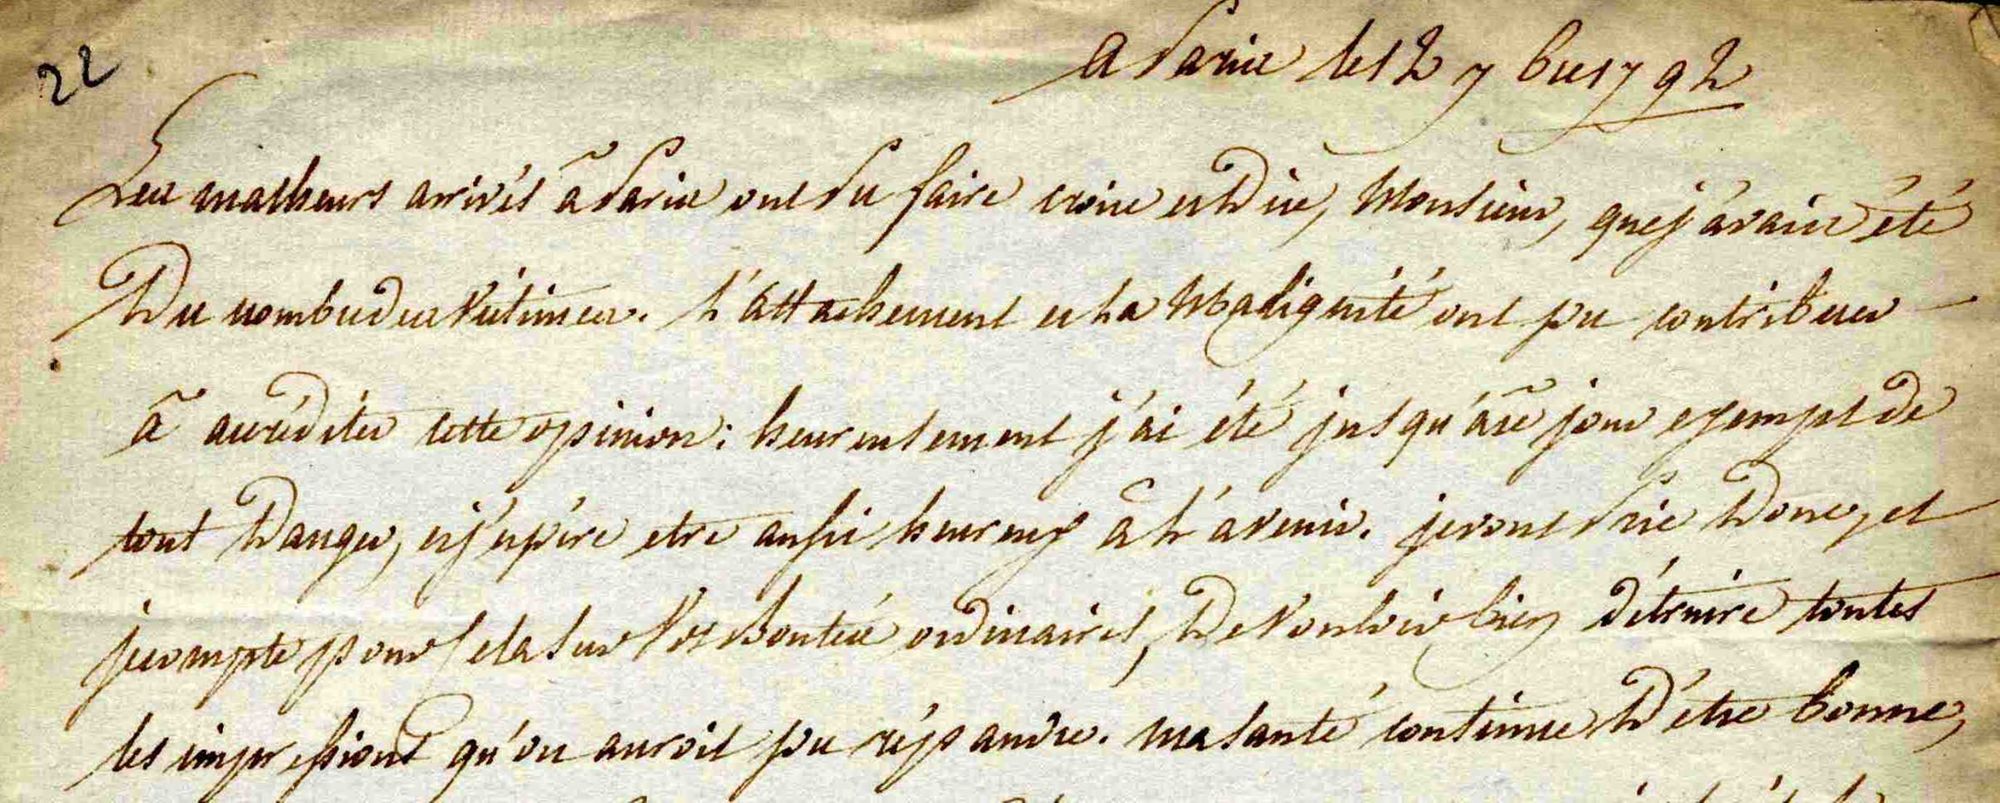 22
a Paris le 12 7bre 1792
Les malheurs arrivés à Paris ont pu faire croire et dire, Monsieur, que j'avais été
Du nombre des Victimes. L'attachement et La Malignité ont pu contribuer
à accréditer cette opinion: heureusement j'ai été jusqu'à ce jour exempt de
tout Danger, et j'espère etre aussi heureux à L'avenir. je vous Prie Donc, et
je compte pour cela sur Vos Bontés ordinaires, De Vouloir bien détruire toutes
les impressions qu'on auroit pu répandre. ma santé continue D'être bonne,